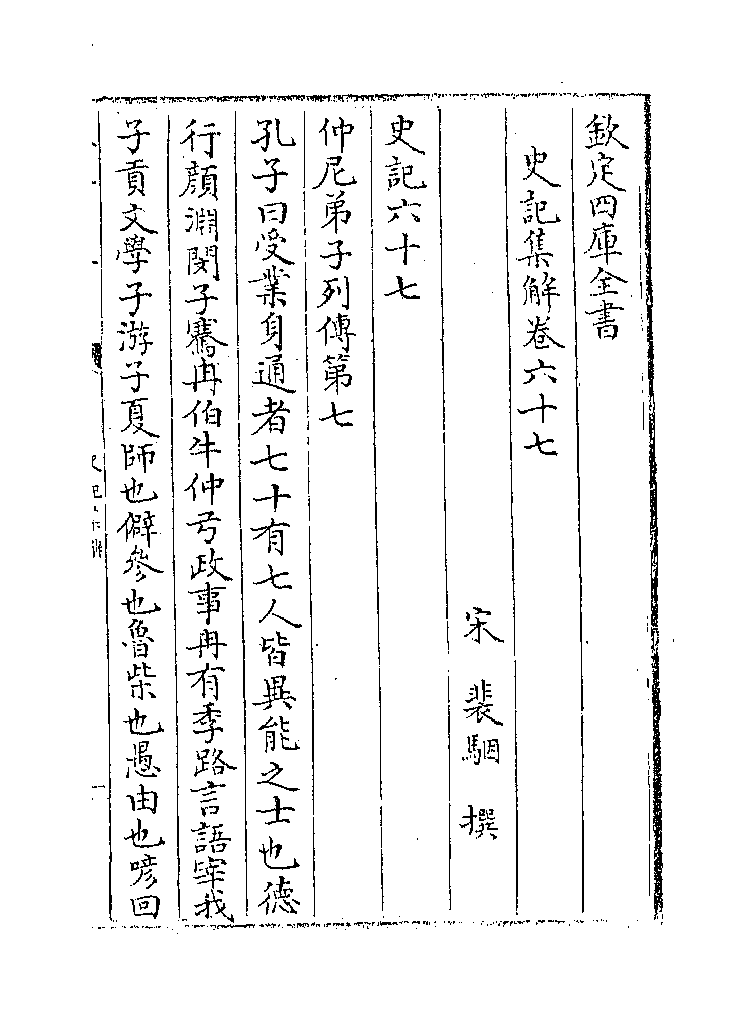 欽定四庫全書
史記集解卷六十七
宋裴駰撰
史記六十七
仲尼弟子列傳第七
孔子曰受業身通者七十有七人皆異能之士也德
行顔淵閔子騫冉伯牛仲弓政事冉有季路言語宰我
子貢文學子游子夏師也僻參也魯柴也愚由也喭回